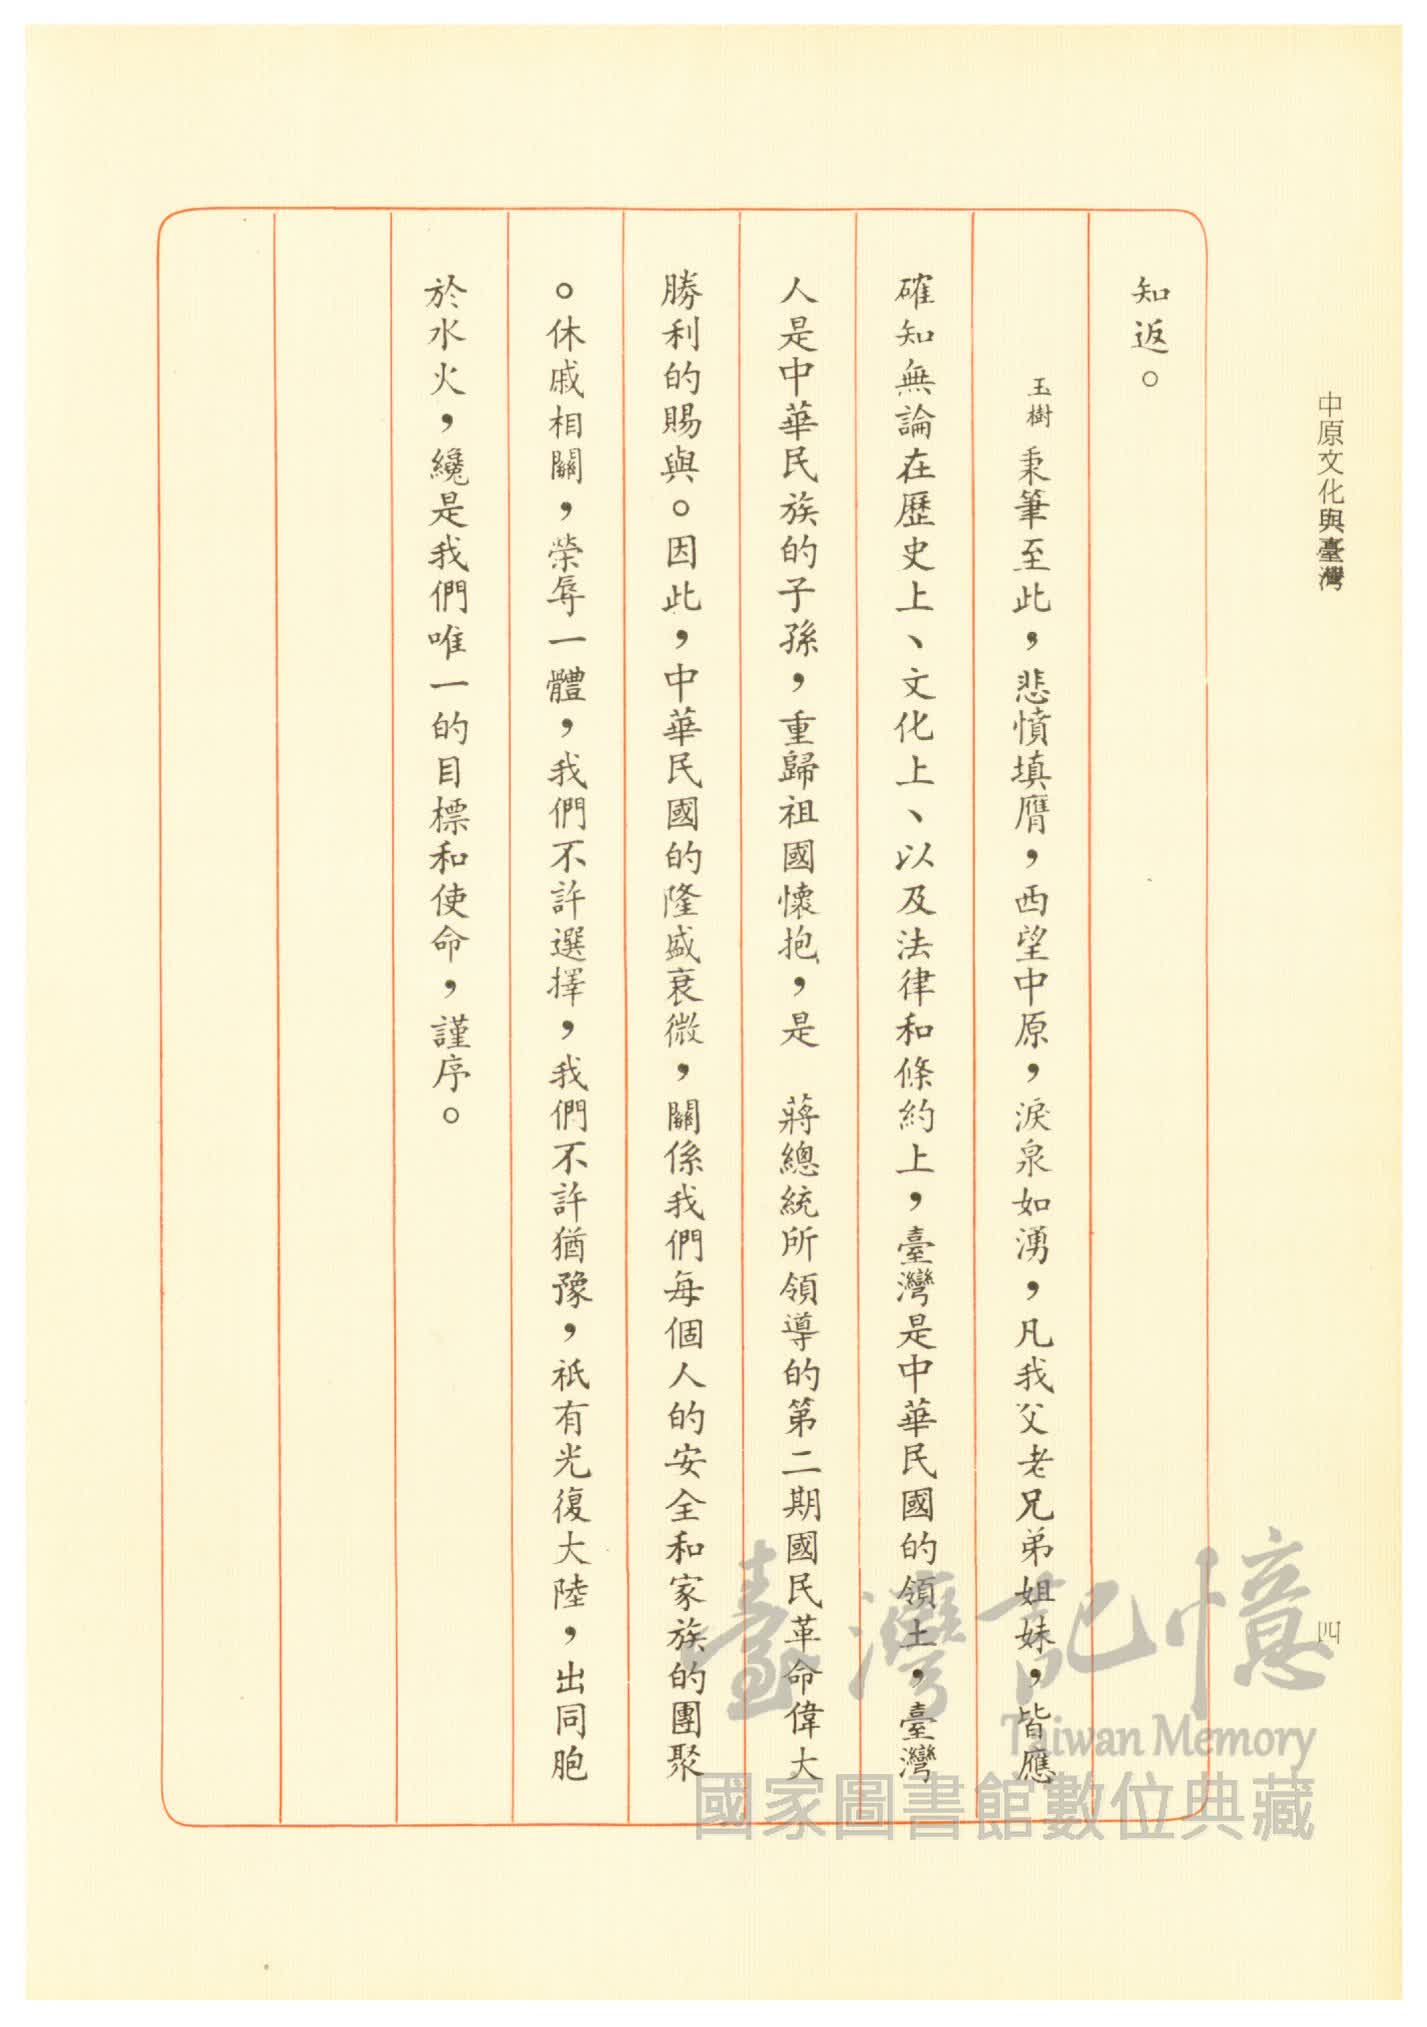 中原文化與臺灣
四
知返。
玉樹秉筆至此，悲憤填膺，西望中原，淚泉如湧，凡我父老兄弟姐妹，皆應
確知無論在歷史上、文化上、以及法律和條約上，臺灣是中華民國的領土，臺灣
人是中華民族的子孫，重歸祖國懷抱，是　蔣總統所領導的第二期國民革命偉大
勝利的賜與。因此，中華民國的隆盛衰微，關係我們每個人的安全和家族的團聚
。休戚相關，榮辱一體，我們不許選擇，我們不許猶豫，祇有光復大陸，出同胞
於水火，纔是我們唯一的目標和使命，謹序。
臺灣記憶
Taiwan Memory
國家圖書館數位典藏